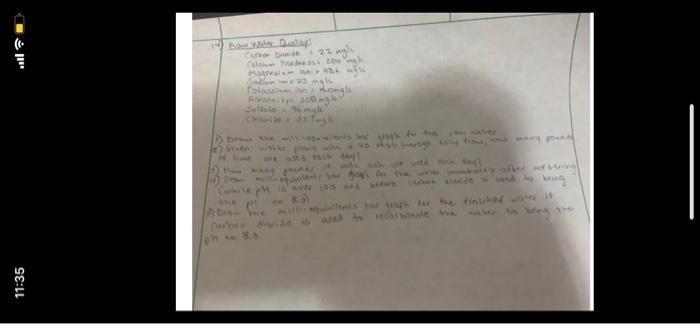 11:35
Raw Water Quality:
Carbon Dioxide = 22 mg/L
Calcium Hardness = 200 mg/L
Magnesium ion = mg/L
Sodium ion = 23 mg/L
Potassium ion = mg/L
Alkalinity = 200 mg/L
Sulfate = 96 mg/L
Chloride = mg/L
1) Draw the milli-equivilents bar graph for the raw water
2) Given water plant with a average daily flow, how many pounds
of lime are used each day?
3) How many pounds of soda ash are used each day?
4) Draw milli-equivilents bar graph for the water immediately after softening
(while pH is over 10.3 and before carbon dioxide is used to bring
the pH to 8.0)
5) Draw the milli-equivilents bar graph for the finished water if
carbon dioxide is used to recarbonate the water to bring the
pH to 8.0